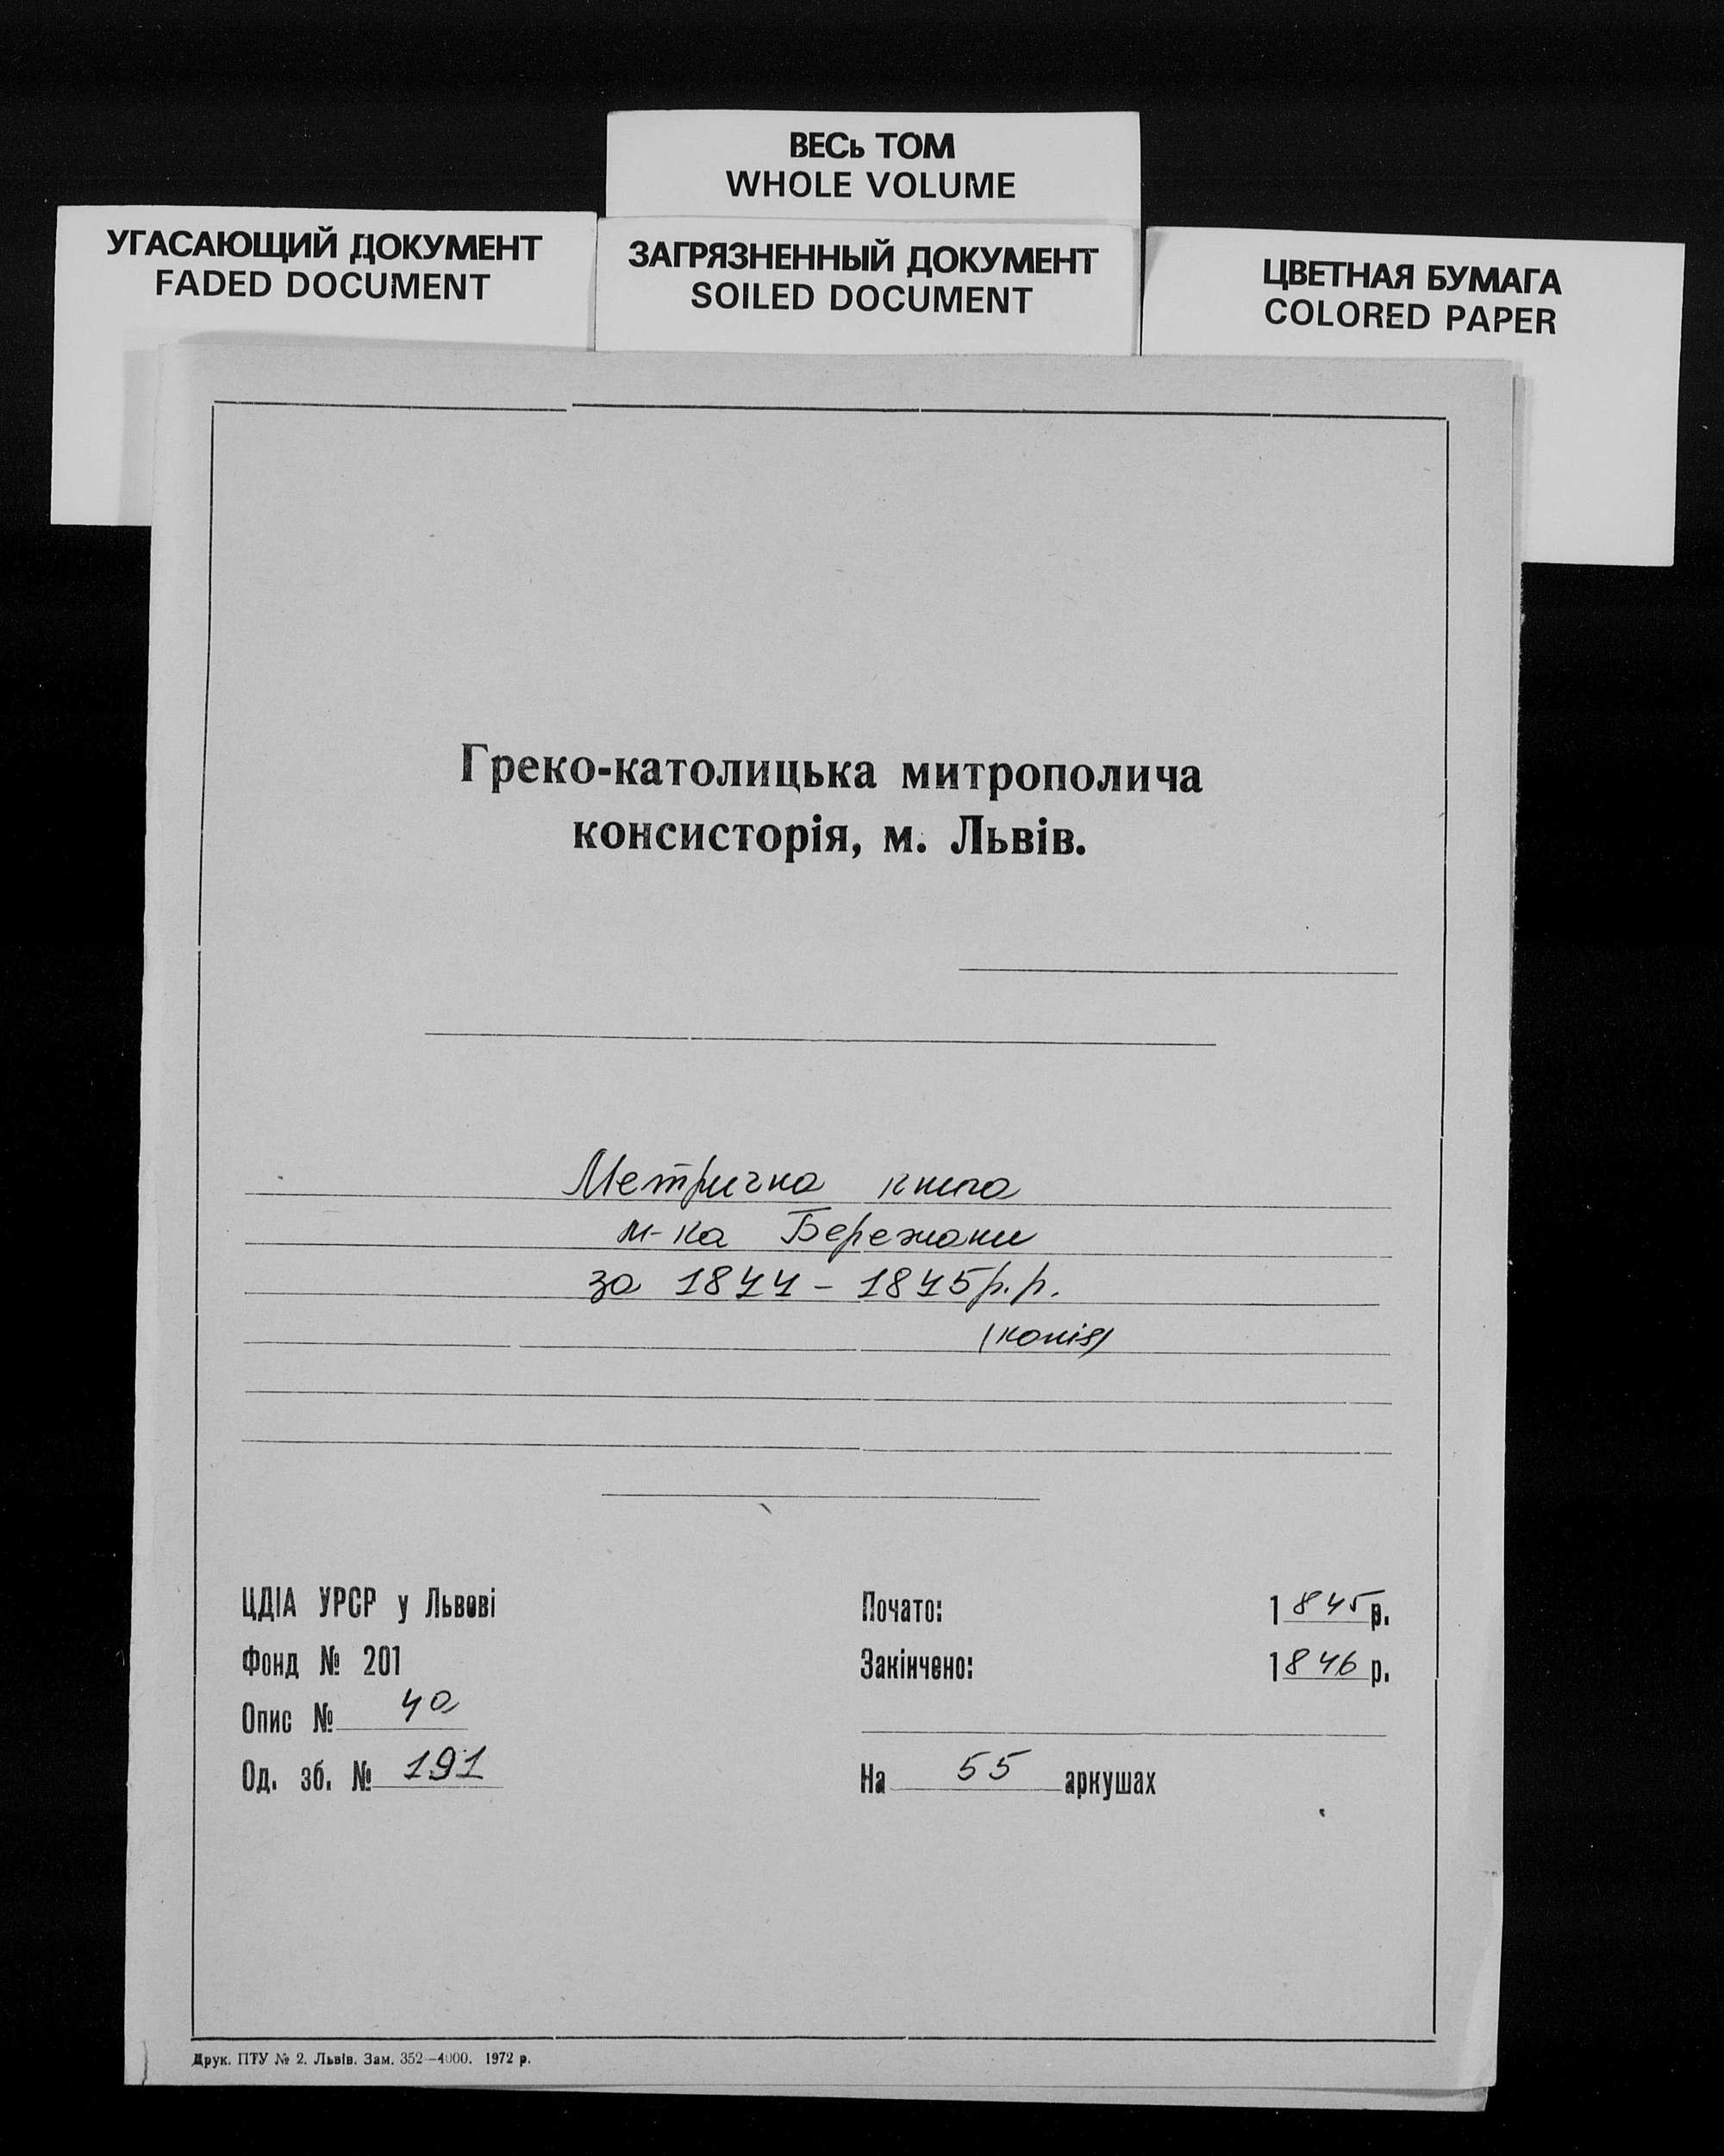 ВЕСЬ ТОМ
WHOLE VOLUME
УГАСАЮЩИЙ ДОКУМЕНТ
FADED DOCUMENT
ЗАГРЯЗНЕННЫЙ ДОКУМЕНТ
SOILED DOCUMENT
ЦВЕТНАЯ БУМАГА
COLORED PAPER
Греко-католицька митрополича
консисторія, м. Львів.
Метрична книга
м-ка Бережани
за 1844 - 1845 р.р.
(копія)
ЦДІА УРСР у Львові
Фонд № 201
Опис № 4а
Од. зб. № 191
Почато: 1845 р.
Закінчено: 1846 р.
На 55 аркушах
Друк. ПТУ № 2. Львів. Зам. 352—4000. 1972 р.